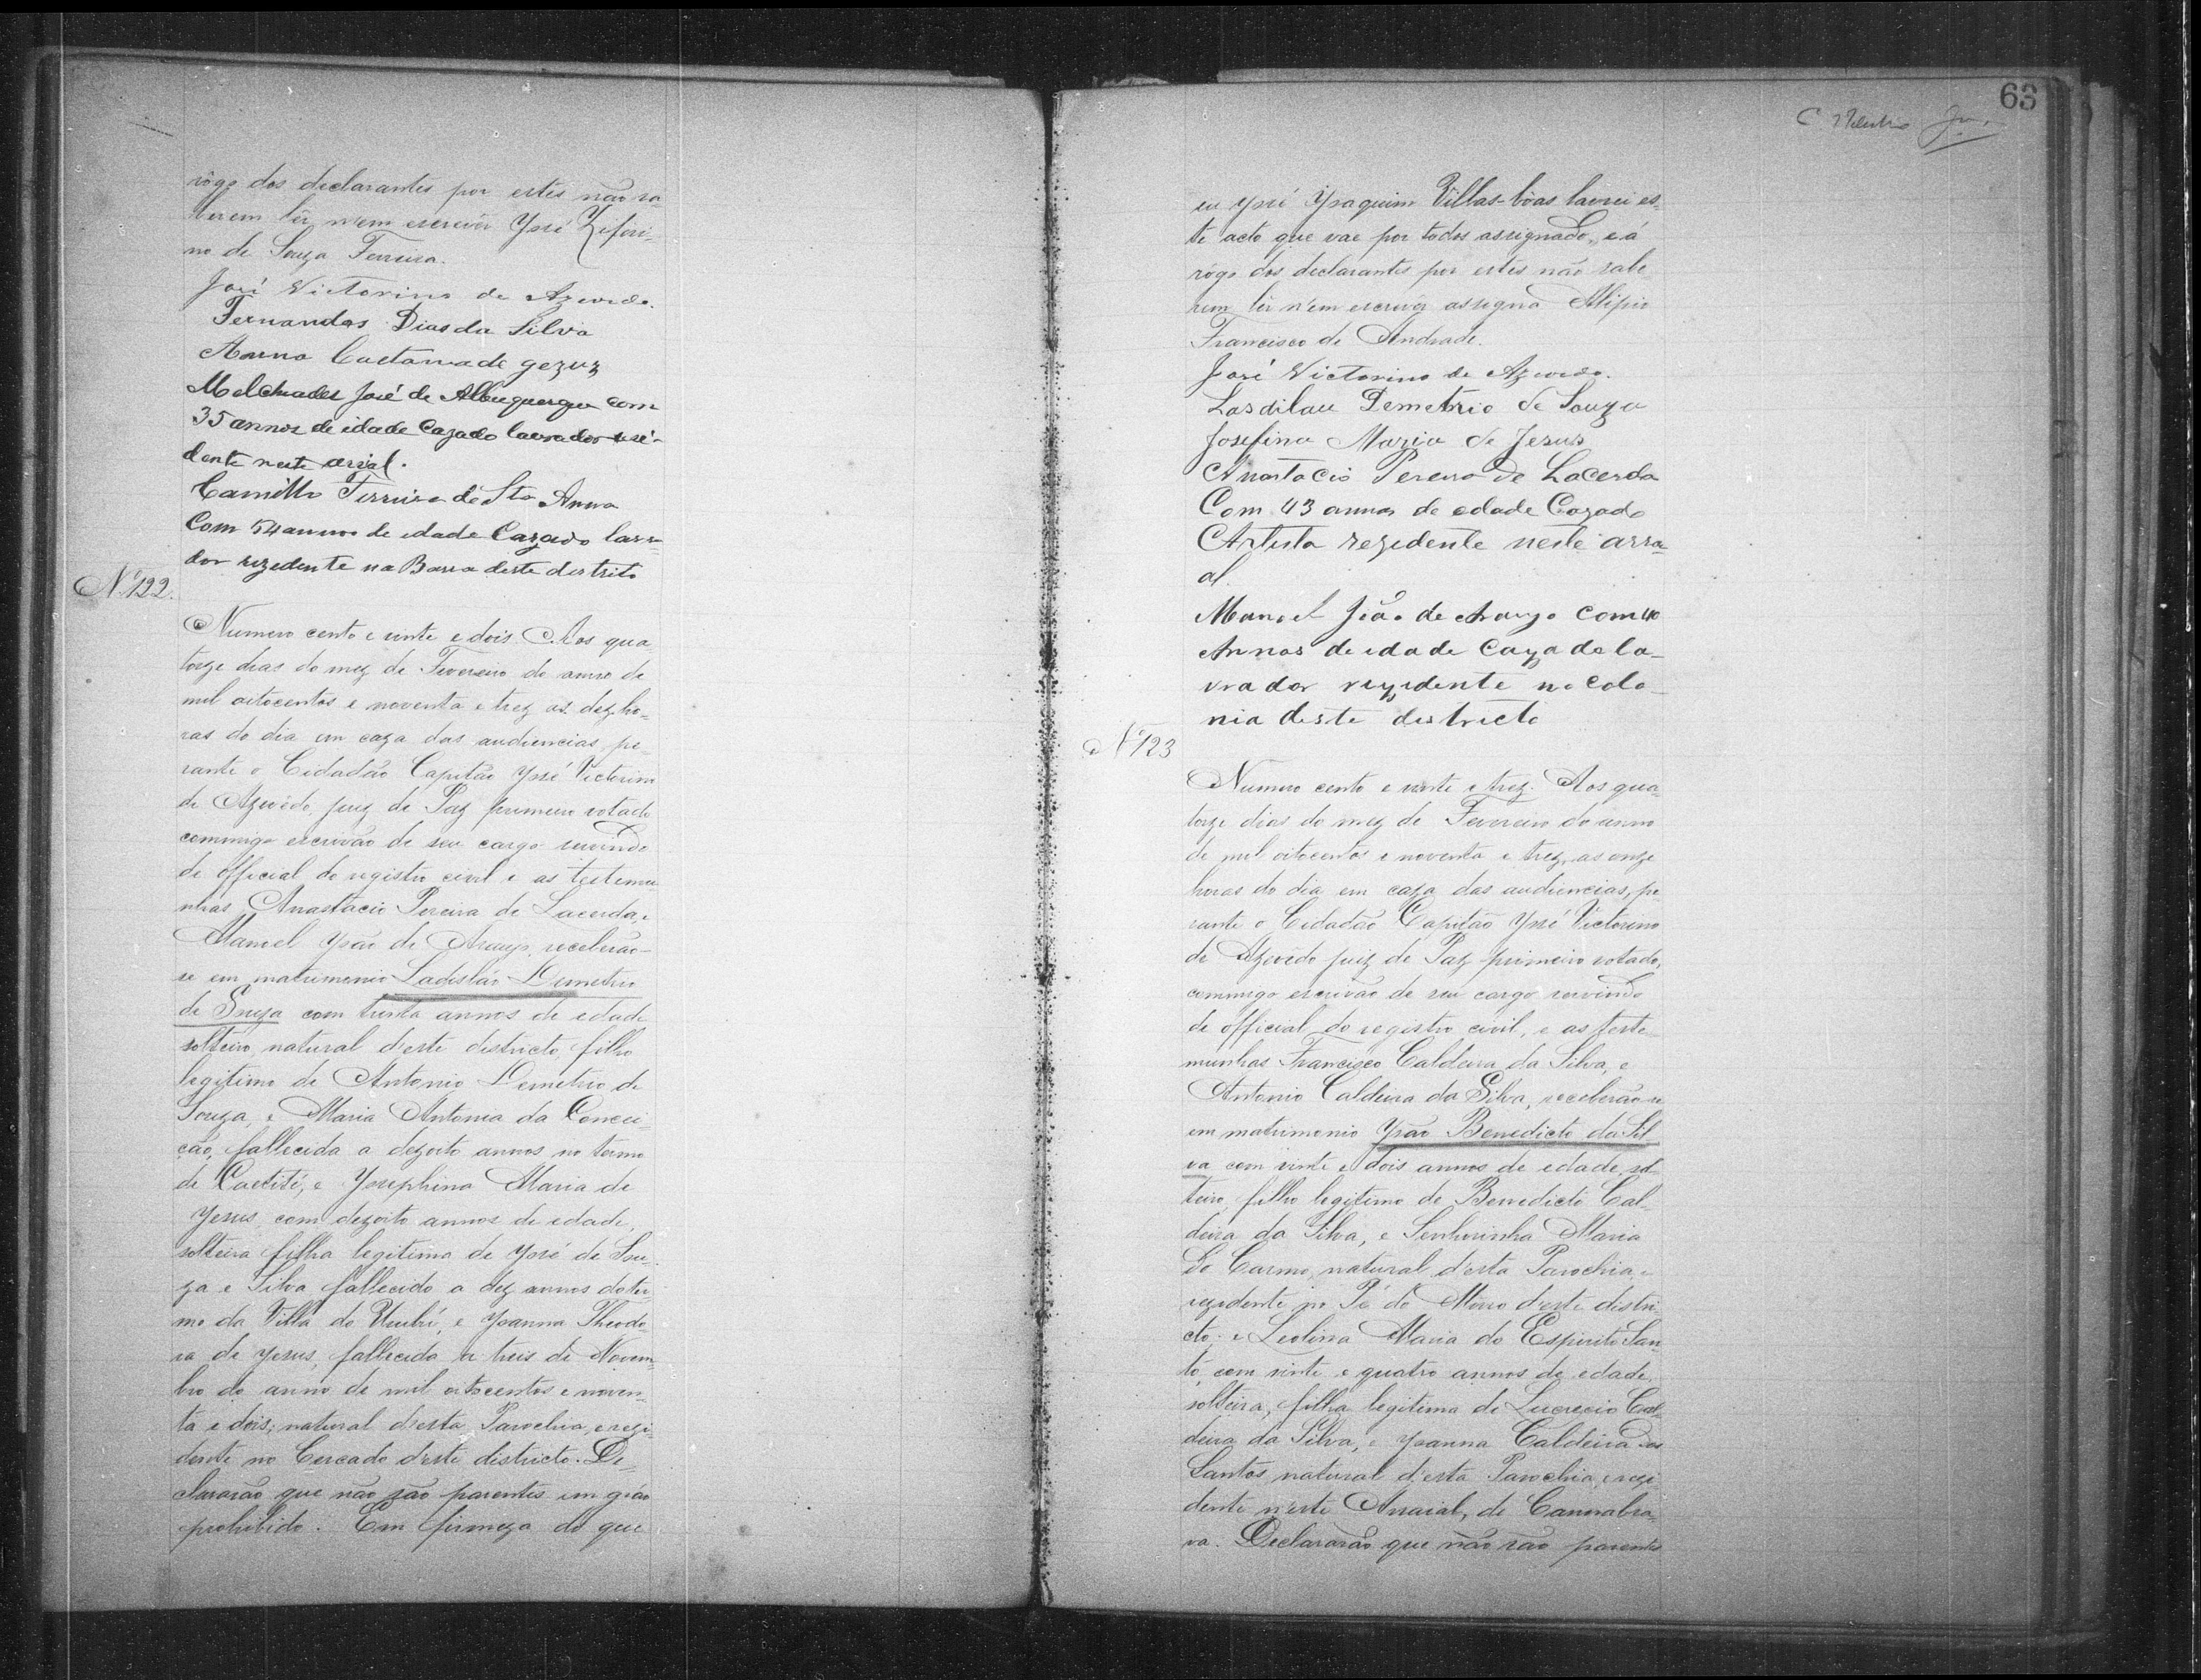 rôgo dos declarantes por estes não sa-
berem lêr, n'em escrevêr José Ziferi-
no de Souza Ferreira.
José Victorino de Azevedo.
Fernandes Dias da Silva
Anna Caetana de gezuz
Melchiades José de Albuquerque com
35 annos de idade Cazado lavrador resi-
dente neste arrial.
Camillo Ferreira de Sta Anna
Com 54 annos de idade Cazado lavra-
dor rezedente na Barra deste destrito
Nº 122.
Numero cento e vinte e dois. Aos qua
torze dias do mez de Fevereiro do anno de
mil oitocentos e noventa e trez as dez ho-
ras do dia em caza das audiencias, pe-
rante o Cidadão Capitão José Victorino
de Azevêdo, juiz de Paz primeiro votado
commigo escrivão de seu cargo servindo
de official do registro civil e as testemu-
nhas Anastacio Pereira de Lacerda, e
Manoel João de Araujo, receberão-
se em matrimonio Ladislão Demetrio
de Souza com trinta annos de edade
solteiro, natural d'este districto, filho
legitimo de Antonio Demetrio de
Souza, e Maria Antonia da Concei-
ção, fallecida a dezoito annos no termo
de Caetité, e Josephina Maria de
Jesus, com dezoito annos de edade,
solteira filha legitima de José de Sou-
za e Silva fallecido a dez annos do ter-
mo da Villa do Urubú, e Joanna Theodo-
ra de Jesus, fallecida a treis de Novem-
bro do anno de mil oitocentos e noven-
ta e dois; natural d'esta Parochia, e rezi-
dente no Cercado d'este districto. De-
clararão que não são parentes em gráo
prohibido. Em firmeza do que
63
eu José Joaquim Villas-bôas lavrei es-
te acto que vae por todos assignado, e á
rôgo dos declarantes por estes não sabe
rem lêr n'em escrevêr assigna Alipio
Francisco de Andrade.
José Victorino de Azevedo.
Lasdilau Demetrio de Souza
Josefina Maria de Jesus
Anastacio Pereira de Lacerda
Com 43 annos de edade Cazado
Artista rezedente neste arra-
al
Manoel João de Araujo Com 40
Annos de idade Cazado la-
vrador rezidente na Colo-
nia deste districto
Nº 123
Numero cento e vinte e trez. Aos qua-
torze dias do mez de Fevereiro do anno
de mil oitocentos e noventa e trez, as onze
horas do dia em caza das audiencias, pe
rante o Cidadão Capitão José Victorino
de Azevêdo juiz de Paz primeiro votado,
commigo escrivão de seu cargo servindo
de official do registro civil, e as teste-
munhas Francisco Caldeira da Silva, e
Antonio Caldeira da Silva, receberão-se
em matrimonio João Benedicto da Sil
va com vinte e dois annos de edade, sol-
teiro, filho legitimo de Benedicto Cal-
deira da Silva, e Senhorinha Maria
do Carmo, natural d'esta Parochia e
rezidente no Pé do Morro d'este distri-
cto; e Leolina Maria do Espirito San-
to, com vinte e quatro annos de edade,
solteira, filha legitima de Lucrecio Cal-
deira da Silva, e Joanna Caldeira dos
Santos, natural d'esta Parochia, e rezi-
dente n'este Arraial, de Cannabra-
va. Declararão que não são parentes